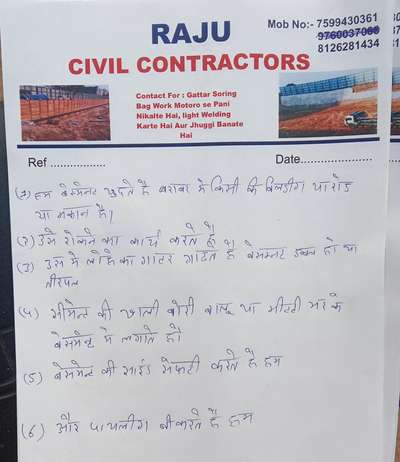 RAJU
CIVIL CONTRACTORS
Mob No:- 7599430361
9760037066
8126281434
Contact For : Gattar Soring
Bag Work Motoro se Pani
Nikalte Hai, light Welding
Karte Hai Aur Jhuggi Banate
Hai
Ref ................
Date....................
(1) हम बेसमेन्ट खुदते है बराबर मे किसी कि बिल्डींग या रोड
या मकान है।
(2) उसे रोकने का कार्य करते है
(3) उस मे लोहे का गाटर गाढते है बेसमन्ट डबल हो या
तीरपल
(4) सीमेन्ट की खाली बोरी बालू या मीटटी भर के
बेसमेन्ट मे लगाते है।
(5) बेसमेन्ट की साईड सेफटी करते है हम
(6) और पायलींग बी करते है हम